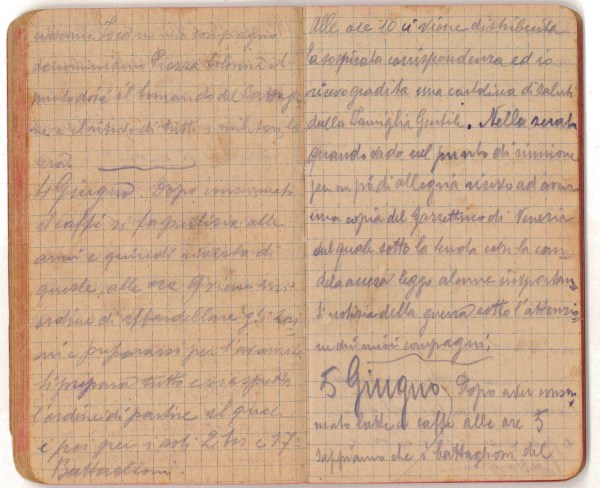 compagno
denominiamo Piazza Colonna il
punto dove il Comando del Battaglio
ne e il ritrovo di tutti i militari la
sera.
4 Giugno. Dopo consumato
il caffè si fa pulizia alle
armi e quindi rivista di
queste, alle ore 9
ordine di affardellare gli zai
ni e prepararsi per l'avanzata
Si prepara tutto e si aspetta
l'ordine di partire il quale
è poi per i soli 2° bis e 17°
Battaglioni.
Alle ore 10 ci viene distribuita
la sospirata corrispondenza ed io
ricevo gradita una cartolina di saluti
dalla Famiglia Gentile. Nella serata
quando vado nel punto di riunione
per un pò di allegria riesco ad avere
una copia del Gazzettino di Venezia
dal quale sotto la tenda con la can=
dela accesa leggo alcune importan=
ti notizie della guerra sotto l'attenzio=
ne dei miei compagni.
5 Giugno Dopo aver consu=
mato latte e caffè alle ore 5
sappiamo che i battaglioni del